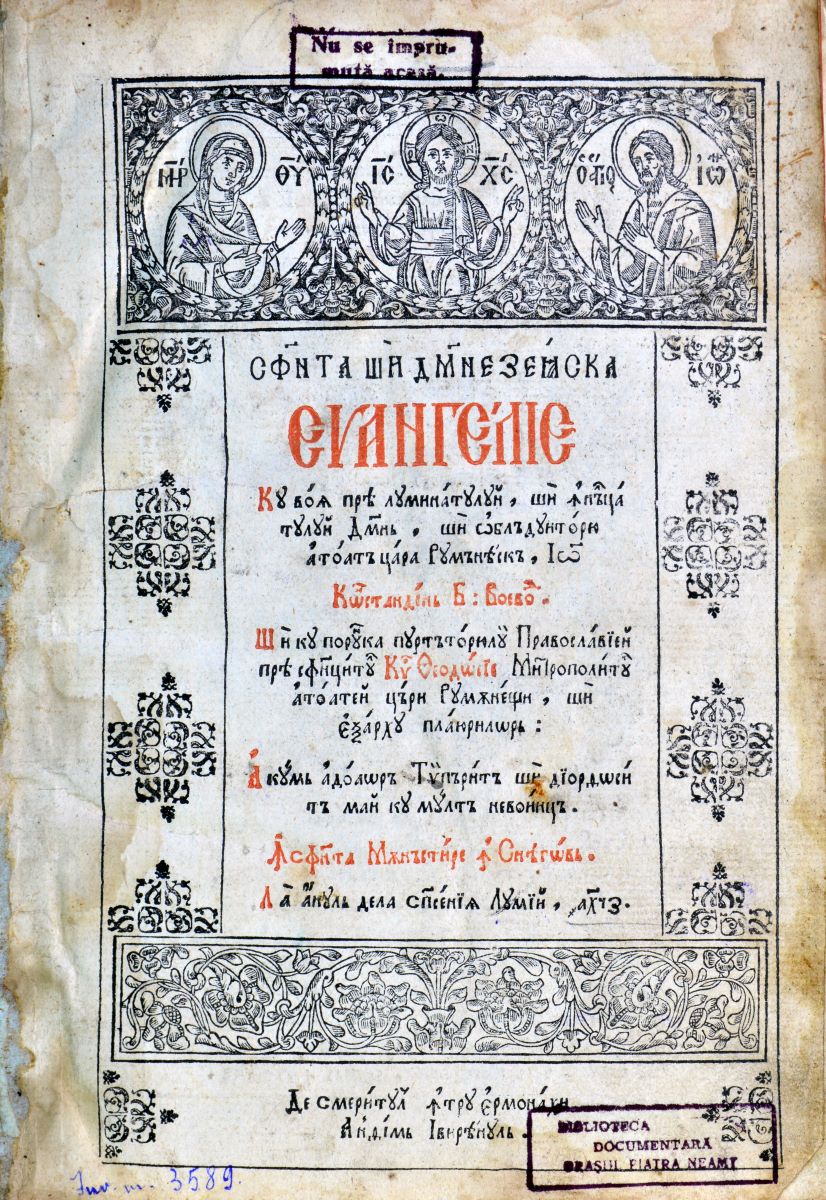 Nu se împru-
mută acasă.
М҃Р Ѳ҃У І҃С Х҃С О АГІОС ІѠ
СФН҃ТА ШИ ДМ҃НЕЗЕѦСКА
ЕѴАНГЕЛІЕ
Ку воѧ прѣ луминатулуй, ши ꙟнъца
тулуй Дм҃нь, ши ѡблъдуиторю
атоатъ цара Румънѣскъ, Іѡ҃
Кѡстандінь Б: Воевод.
Ши ку порунка пуртъторюлуй Православіей
прѣ сфинцитул Кѵр Ѳеодосіе Митрополитул
атоатей църи Румѫнещи, ши
еѯархү плаюрилѡрь:
Акумь адоаѡръ Тѷпърит ши діѡрдоси
тъ май ку мулт невоинцъ.
Ꙟ сфн҃та Мѫнъстире ꙟ Снѣговь.
Ла анѹль дела сп҃сеніѧ Лумій, ҂ахч҃з.
Де смеритул ꙟтру ермонахи
Анѳімь Івирѣнуль.
BIBLIOTECA
DOCUMENTARĂ
ORAȘUL PIATRA NEAMȚ
Inv. nr. 3589.